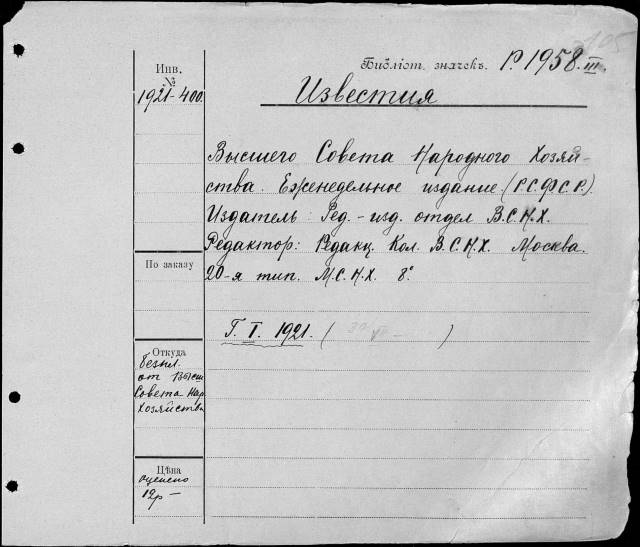 405
Инв.
№
1921-400.
Библіот. значекъ. Р. 1958. III.
Известия
Высшего Совета Народного Хозяй-
ства. Еженедельное издание. (Р.С.Ф.С.Р.)
Издатель: Ред.-изд. отдел В.С.Н.Х.
Редактор: Редакц. Кол. В.С.Н.Х. Москва.
20-я тип. М.С.Н.Х. 8°
По заказу
Г. I. 1921. ( VII – )
Откуда
безпл.
от Высш
Совета Нар
Хозяйства
Цѣна
оценено
12р –